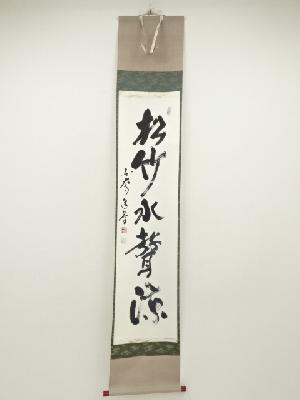 松竹水聲涼